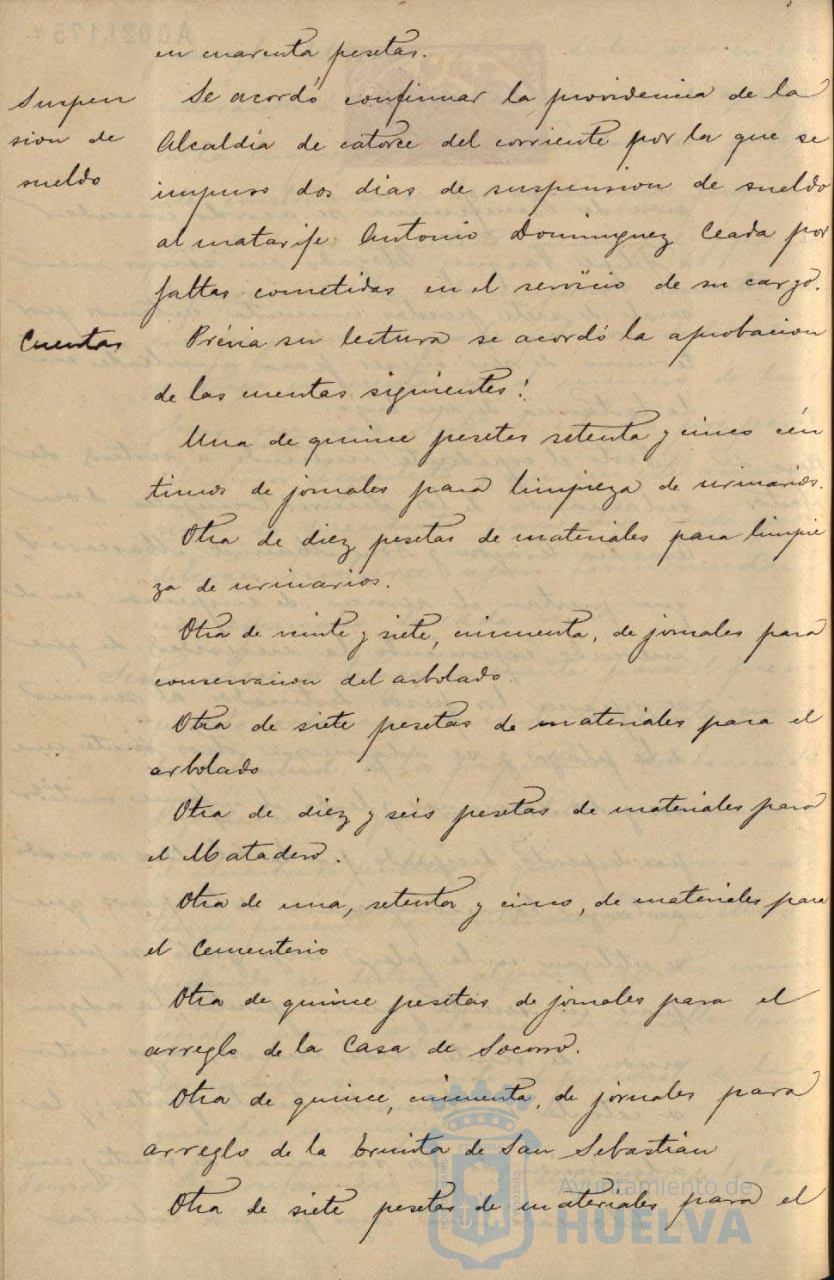 en cuarenta pesetas.
Suspen
sion de
sueldo
Se acordó confirmar la providencia de la
Alcaldía de catorce del corriente por la que se
impuso dos dias de suspension de sueldo
al matarife Antonio Dominguez Ceada por
faltas cometidas en el servicio de su cargo.
Cuentas
Prévia su lectura se acordó la aprobacion
de las cuentas siguientes:
Una de quince pesetas setenta y cinco cén
timos de jornales para limpieza de urinarios.
Otra de diez pesetas de materiales para limpie
za de urinarios.
Otra de veinte y siete, cincuenta, de jornales para
conservacion del arbolado
Otra de siete pesetas de materiales para el
arbolado
Otra de diez y seis pesetas de materiales para
el Matadero.
Otra de una, setenta y cinco, de materiales para
el Cementerio
Otra de quince pesetas de jornales para el
arreglo de la Casa de Socorro.
Otra de quince, cincuenta, de jornales para
arreglo de la Ermita de San Sebastián
Otra de siete pesetas de materiales para el
Ayuntamiento de
HUELVA